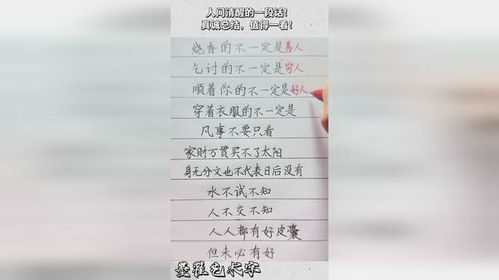 人间清醒的一段话！
真诚总结，值得一看！
烧香的不一定是善人
乞讨的不一定是穷人
顺着你的不一定是好人
穿着衣服的不一定是
凡事不要只看
家财万贯买不了太阳
身无分文也不代表日后没有
水不试不知
人不交不知
人人都有好皮囊
但未必有好